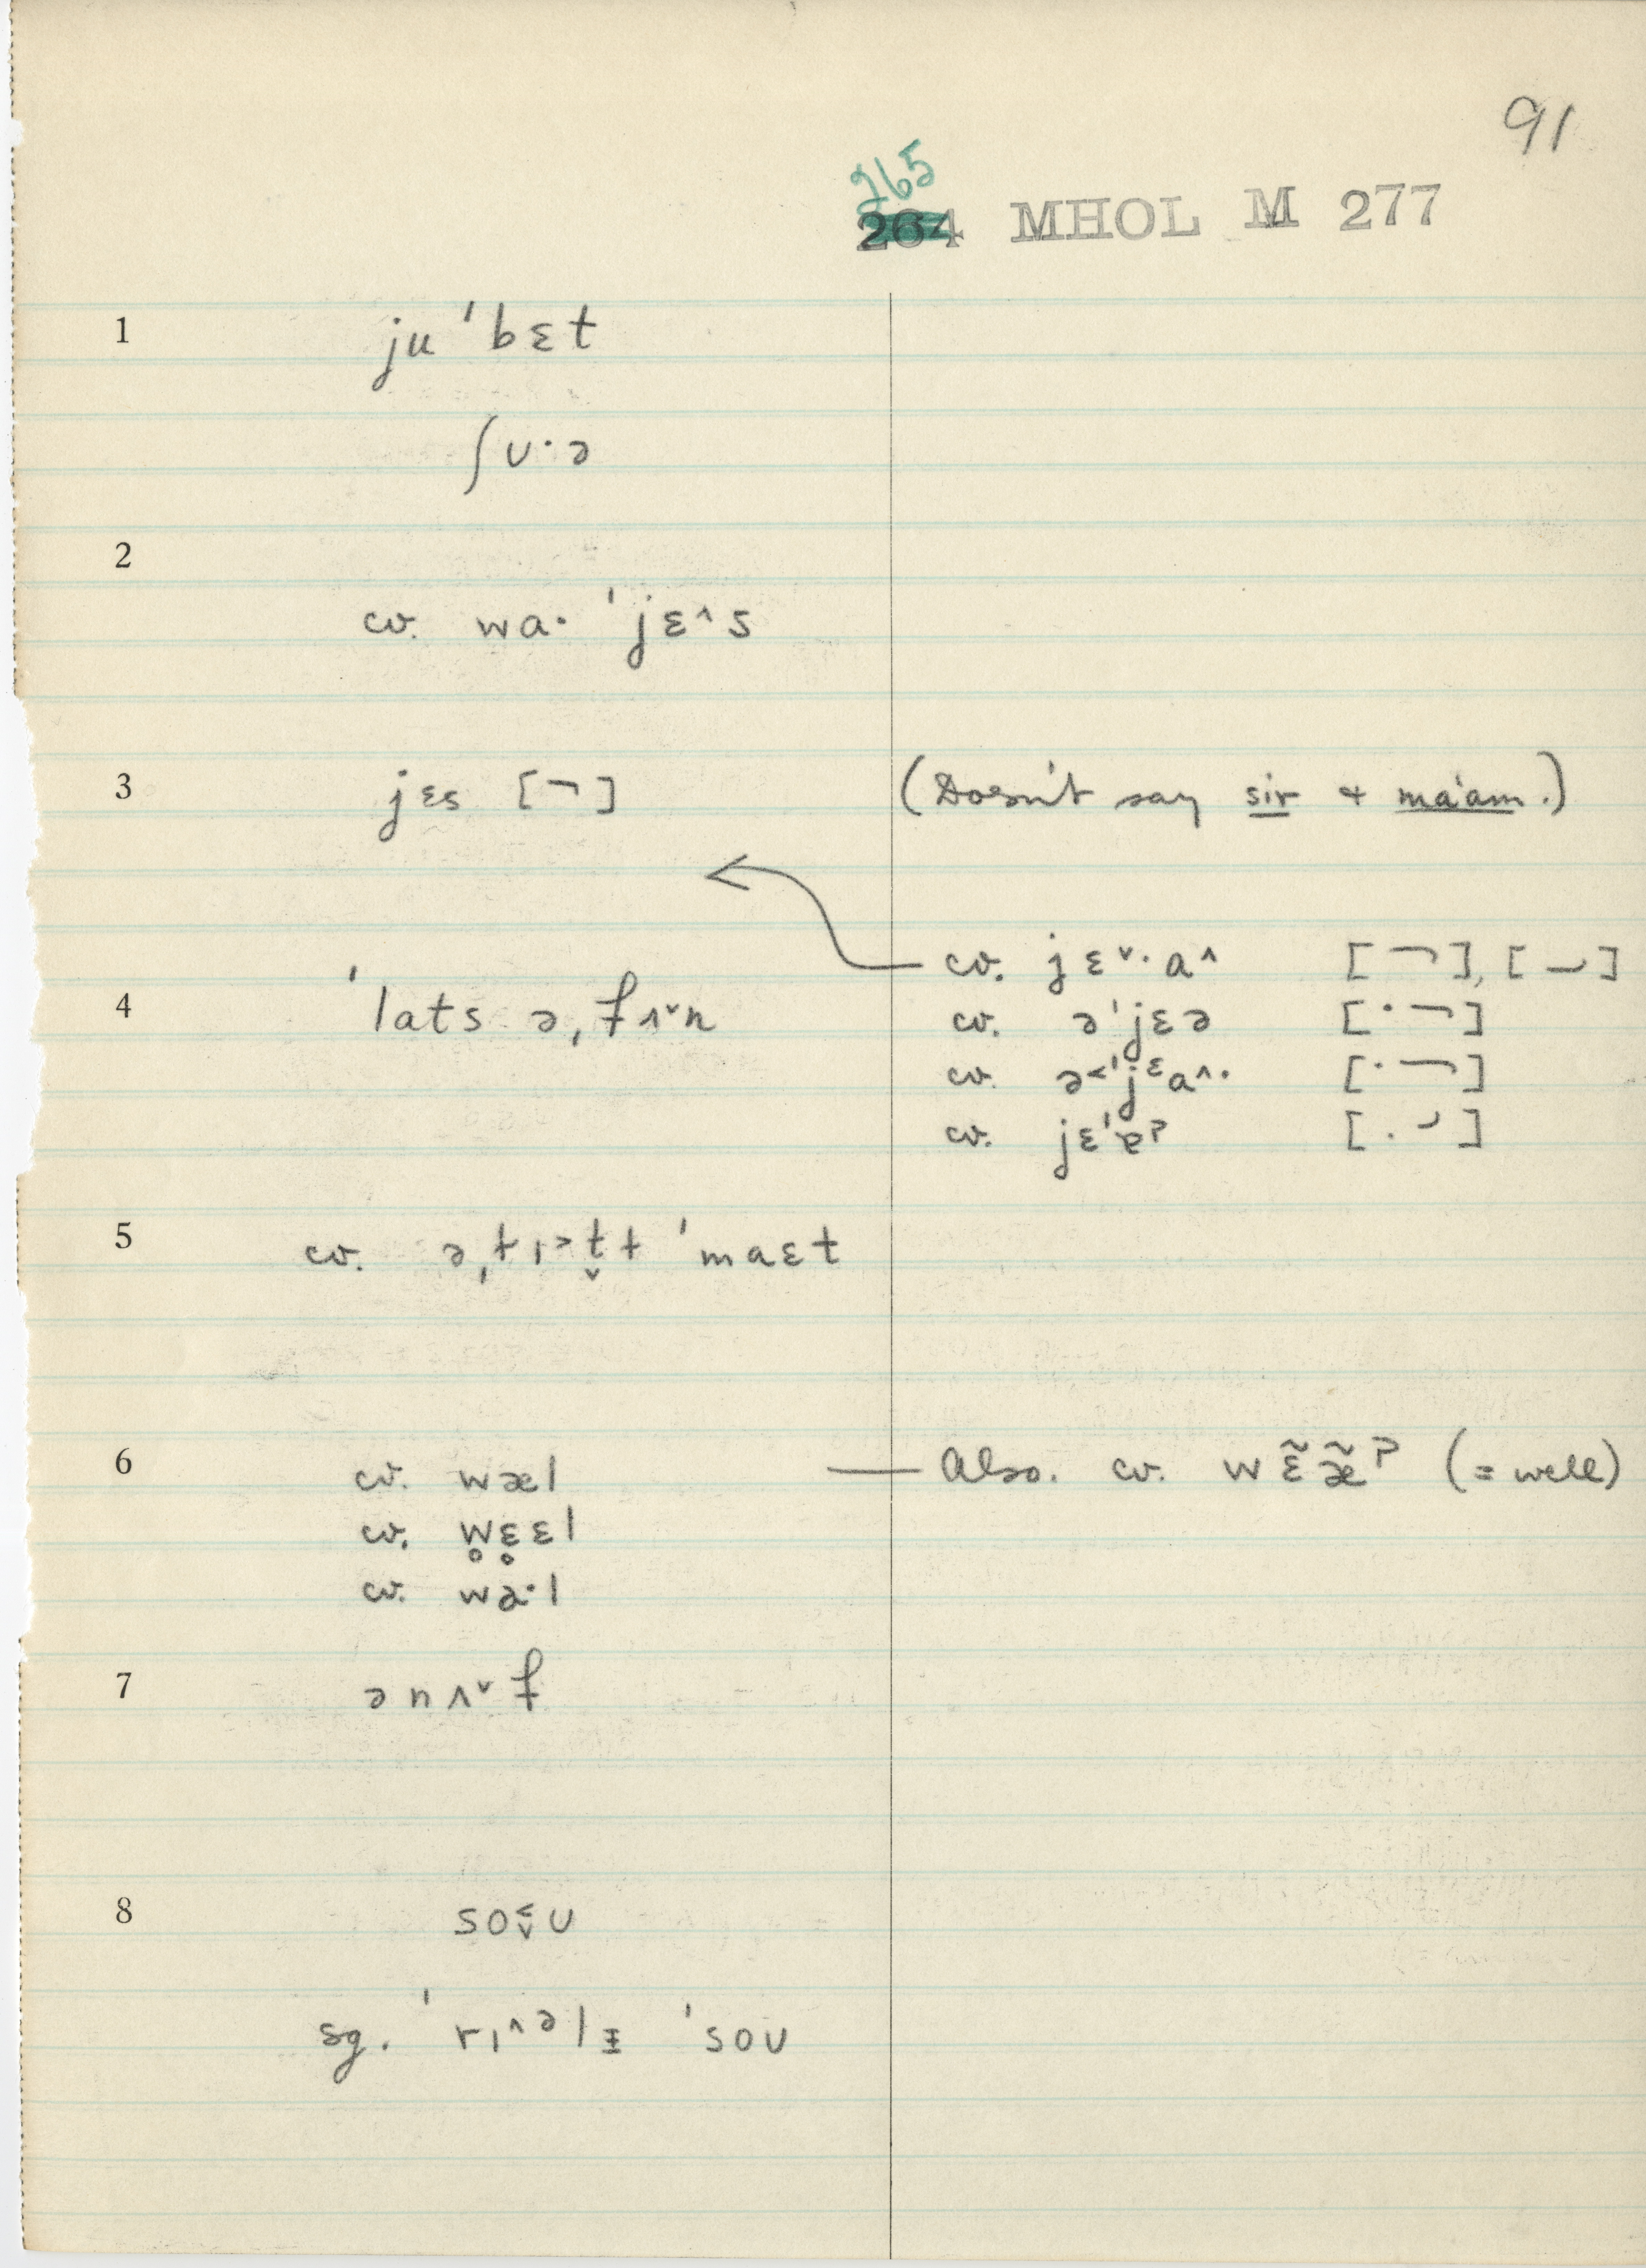 91
265
264 MHOL M 277
1 ju ˈbɛt
ʃʊ·ə
2
cv. wa· ˈjɛ^s
3 jɛs [¬] (Doesn't say sir + ma'am.)
cv. jɛˇ·a^ [¬], [⌣]
4 ˈlats ə,fʌˇn cv. əˈjɛə [·¬]
cv. ə<ˈjᵋa^·  [·¬]
cv. jɛˈɐʔ [.⌣]
5 cv. ə,tɪ>t̬t ˈmaɛt
6 cv. wæl — Also. cv. wɛ̃æ̃ʔ (= well)
cv. w̥ɛ̥ɛl
cv. wa·l
7 ənʌˇf
8 so<ˇʊ
sg. ˈrɪ^ᵊlɪ ˈsoʊ